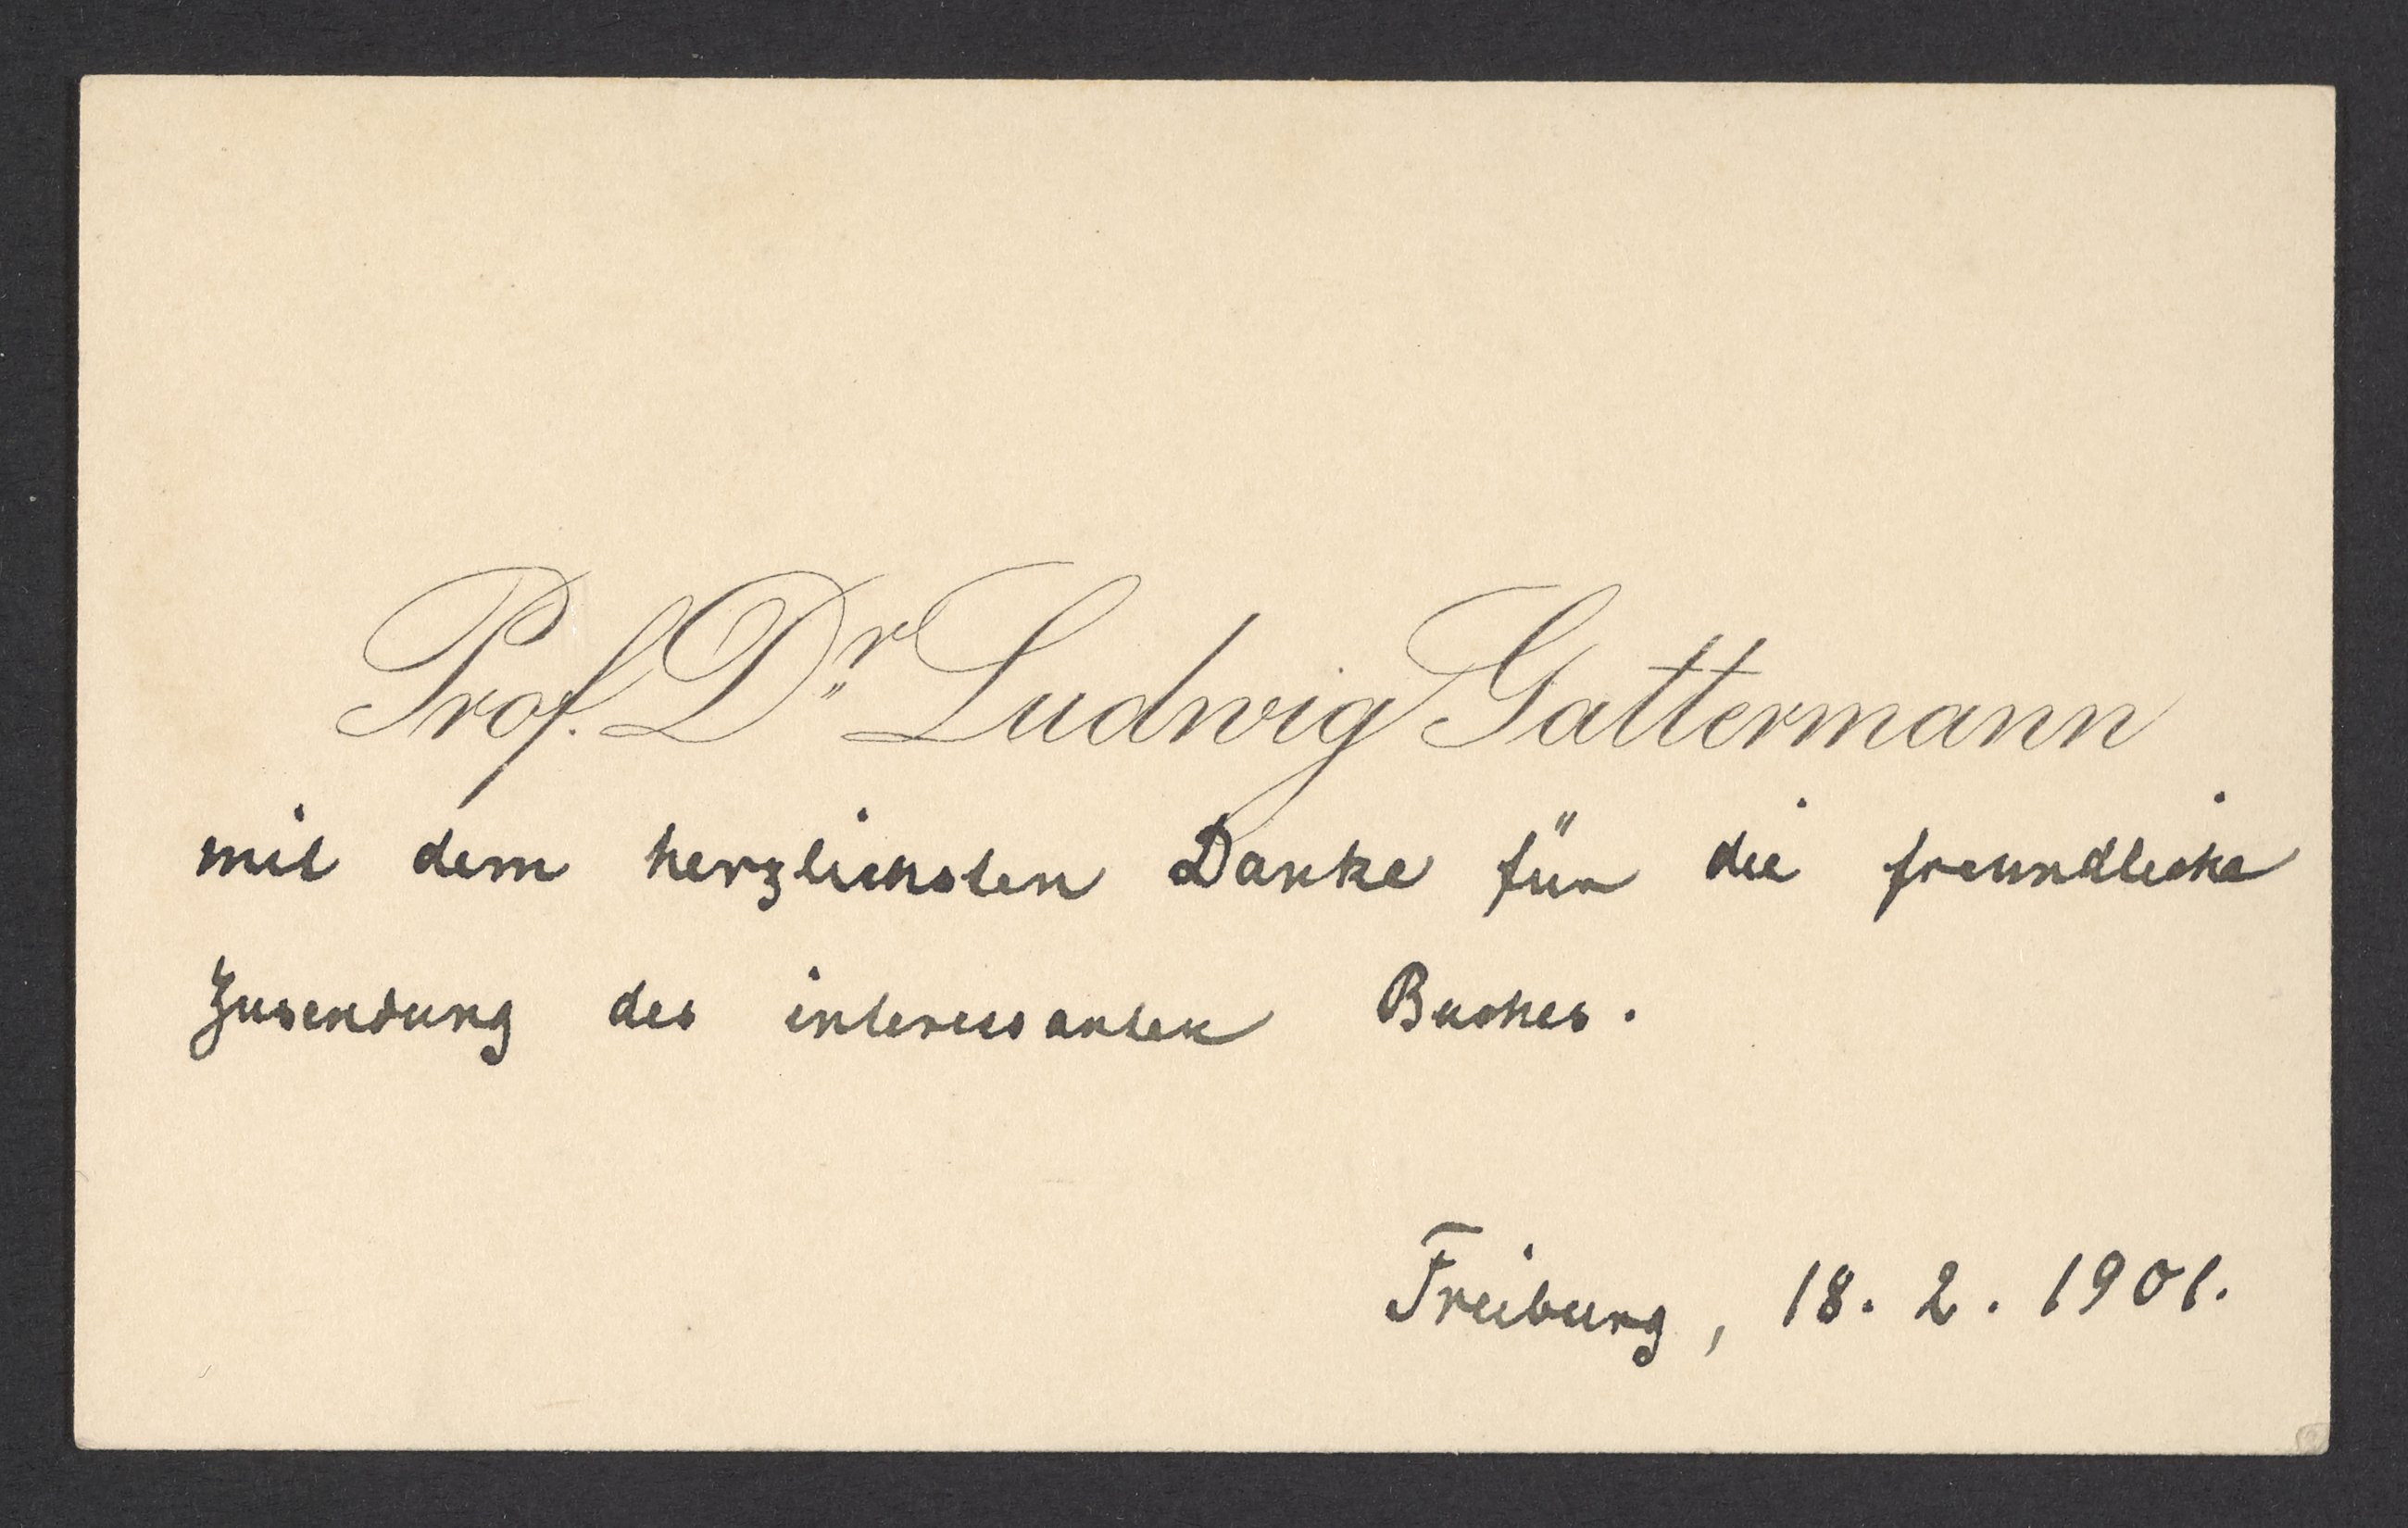 Prof. Dr. Ludwig Gattermann
mit dem herzlichsten Danke für die freundliche
Zusendung des interessanten Buches.
Freiburg, 18. 2. 1901.